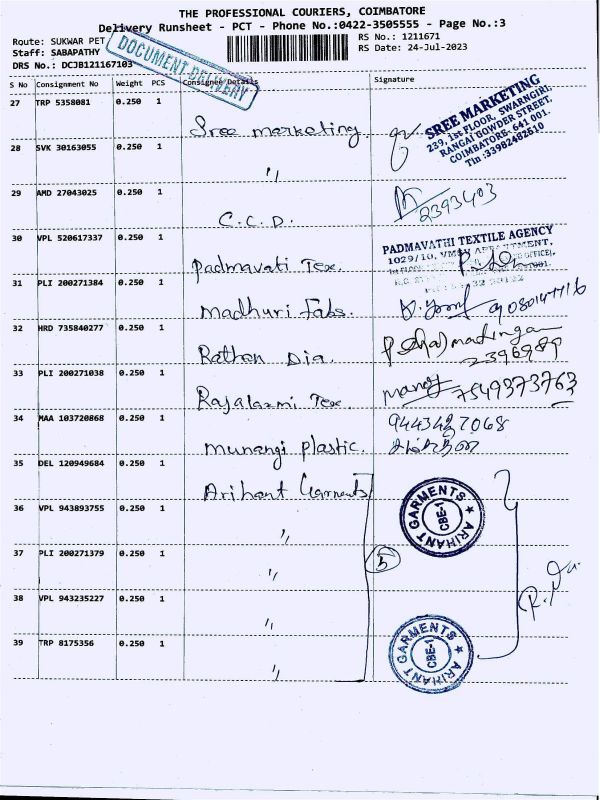 THE PROFESSIONAL COURIERS, COIMBATORE
Delivery Runsheet - PCT - Phone No.:0422-3505555 - Page No.:3
Route: SUKWAR PET
RS No.: 1211671
Staff: SABAPATHY
RS Date: 24-Jul-2023
DRS No.: DCJB121167103
DOCUMENT DELIVERY
S No Consignment No Weight PCS Consignee Details Signature
27 TRP 5358081 0.250 1
Sree marketing
SREE MARKETING
239, 1st FLOOR, SWARNGIRI,
RANGAI GOWDER STREET,
COIMBATORE- 641 001.
Tin :33982482610
28 SVK 30163055 0.250 1
"
29 AMD 27043025 0.250 1
C.C.D.
2393403
30 VPL 520617337 0.250 1
Padmavati Tex.
PADMAVATHI TEXTILE AGENCY
31 PLI 200271384 0.250 1
Madhuri Fabs.
32 HRD 735840277 0.250 1
Rathan Dia.
2396989
33 PLI 200271038 0.250 1
Rajalaxmi Tex.
manoj 7549373763
34 MAA 103720868 0.250 1
munangi plastic.
9443427068
35 DEL 120949684 0.250 1
Arihant Garments
ARIHANT GARMENTS
CBE-1
36 VPL 943893755 0.250 1
"
37 PLI 200271379 0.250 1
"
5
38 VPL 943235227 0.250 1
"
39 TRP 8175356 0.250 1
"
ARIHANT GARMENTS
CBE-1